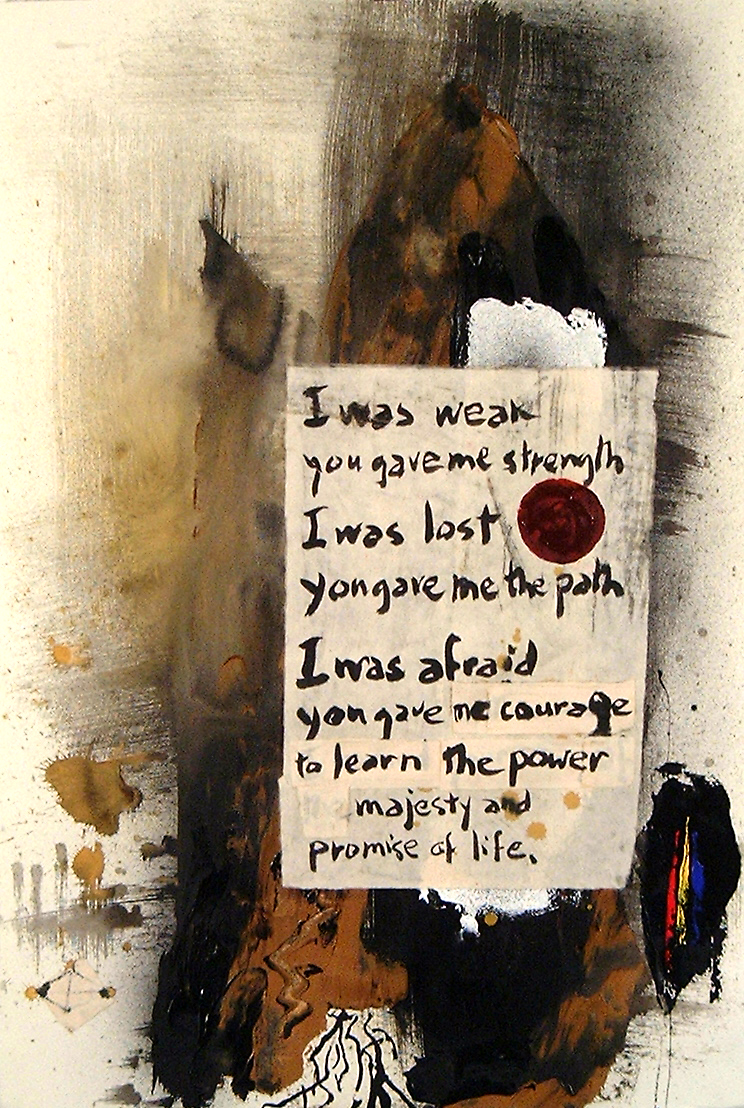 I was weak
you gave me strength
I was lost
you gave me the path
I was afraid
you gave me courage
to learn the power
majesty and
promise of life.